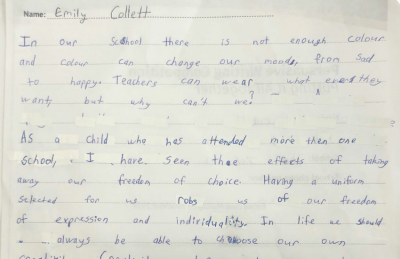 Name: Emily Collett
In our School there is not enough colour
and colour can change our moods, from Sad
to happy. Teachers can wear what ever they
want, but why can't we?
As a child who has attended more then one
School, I have. Seen the effects of taking
away our freedom of choice. Having a uniform
selected for us robs us of our freedom
of expression and individuality. In life we should
always be able to choose our own